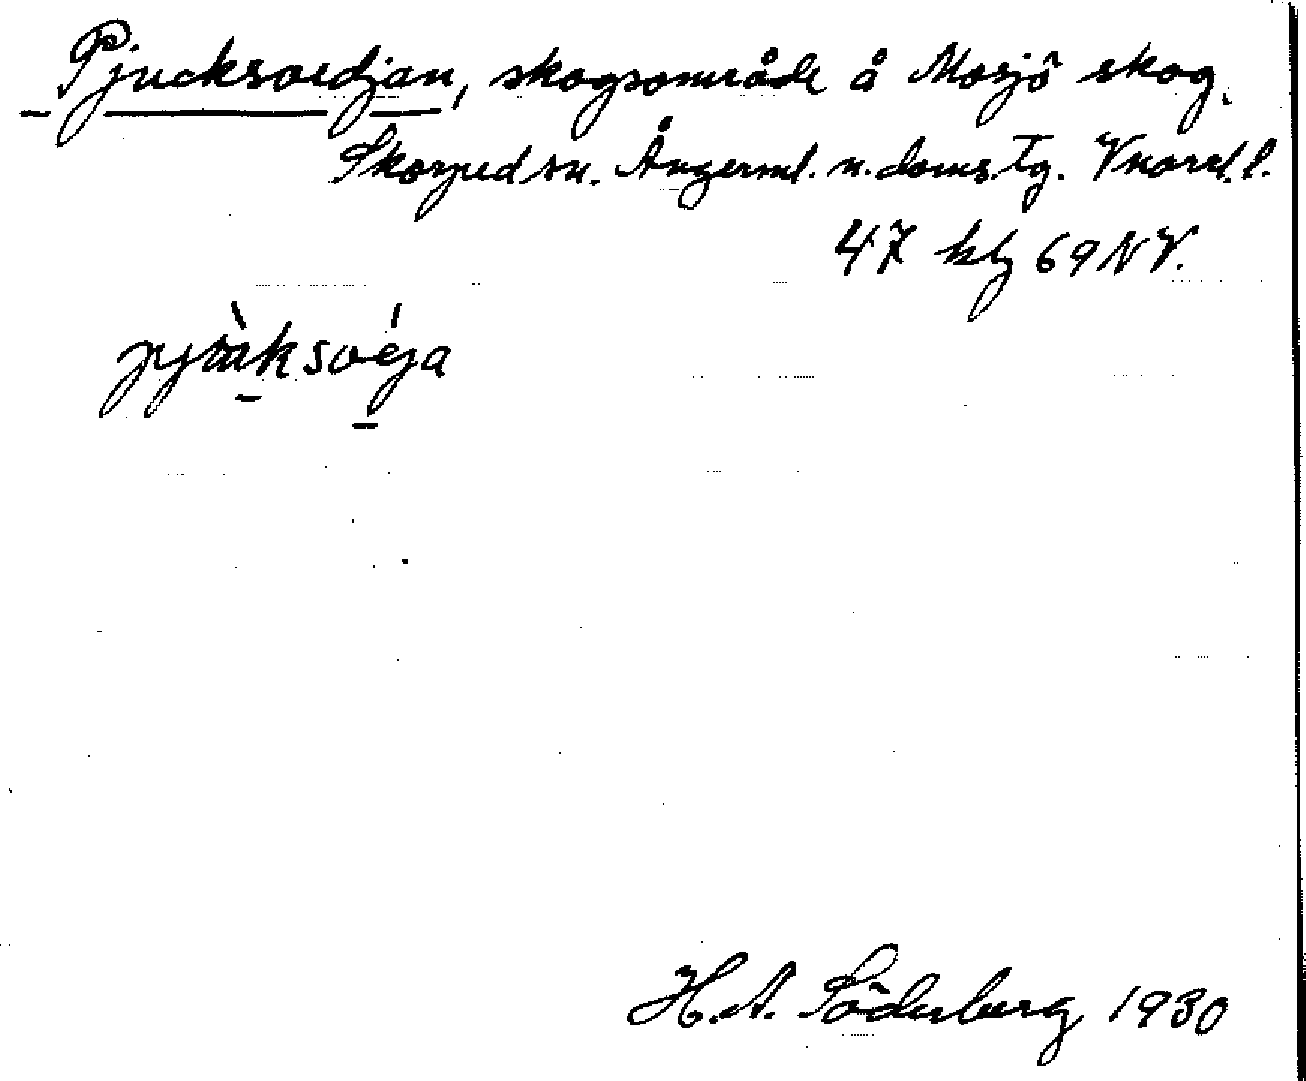 Pjucksvedjan, skogsområde å Mosjö skog.
Skorped sn. Ångerml. n. doms. tg. Vnorrl. l.
47 hlj 69 NV.
H. A. Söderberg 1930